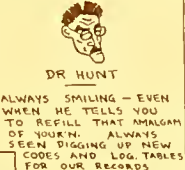 DR HUNT
ALWAYS SMILING – EVEN
WHEN HE TELLS YOU
TO REFILL THAT AMALGAM
OF YOUR'N. ALWAYS
SEEN DIGGING UP NEW
CODES AND LOG. TABLES
FOR OUR RECORDS